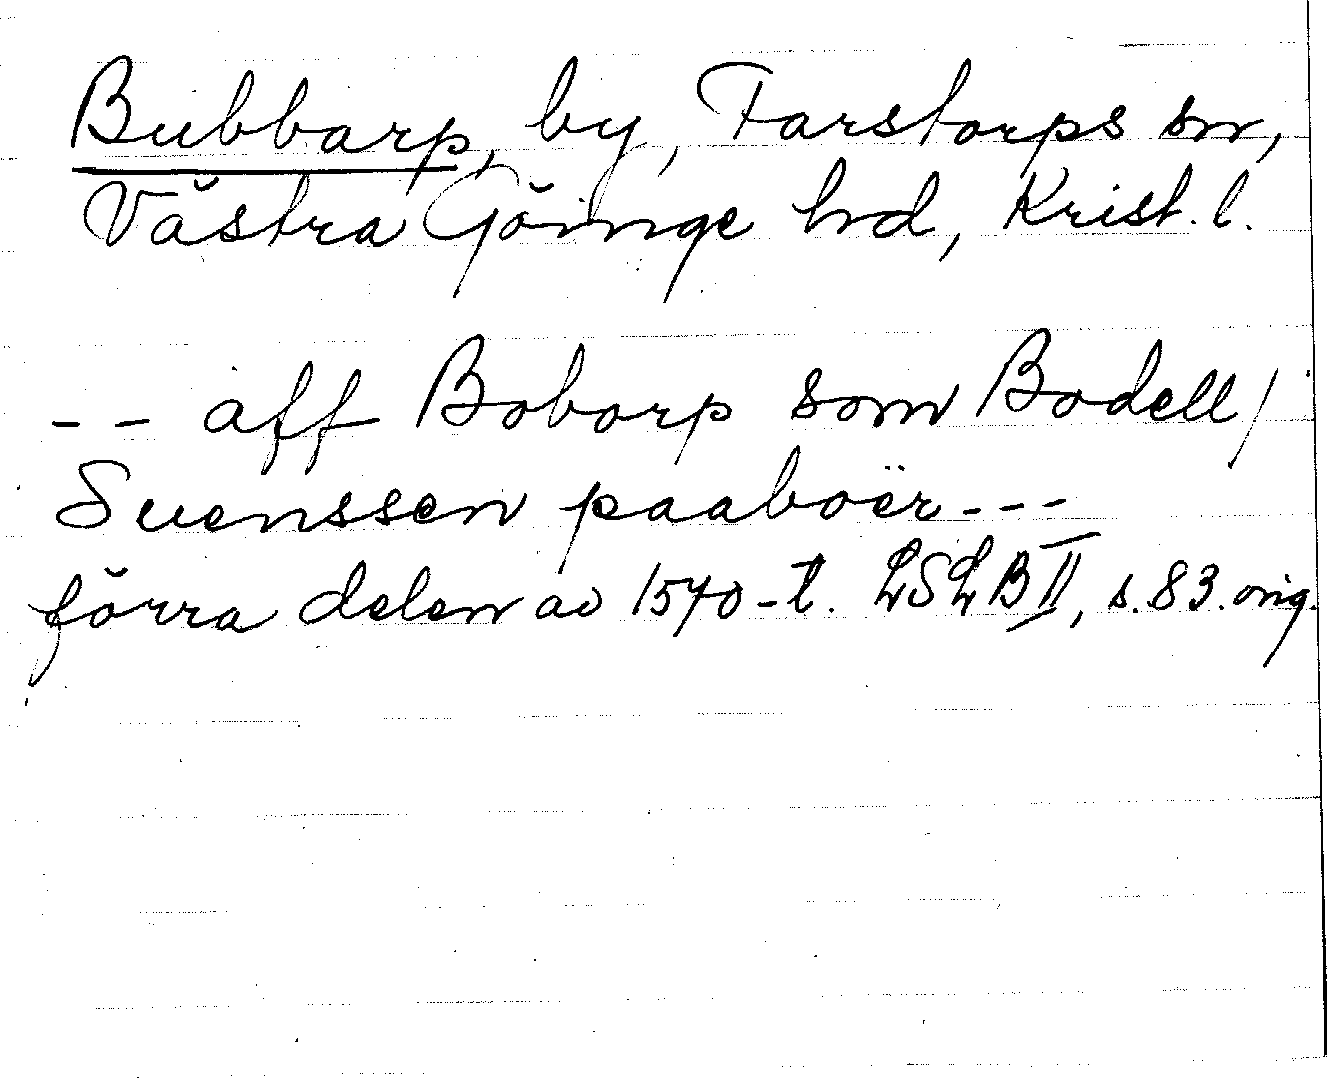 Bubbarp, by, Farstorps sn,
Västra Göinge hrd, Krist. l.
-- aff Boborp som Bodell/
Suenssen paaboër---
förra delen av 1570-t. LSLB II, s. 83. orig.